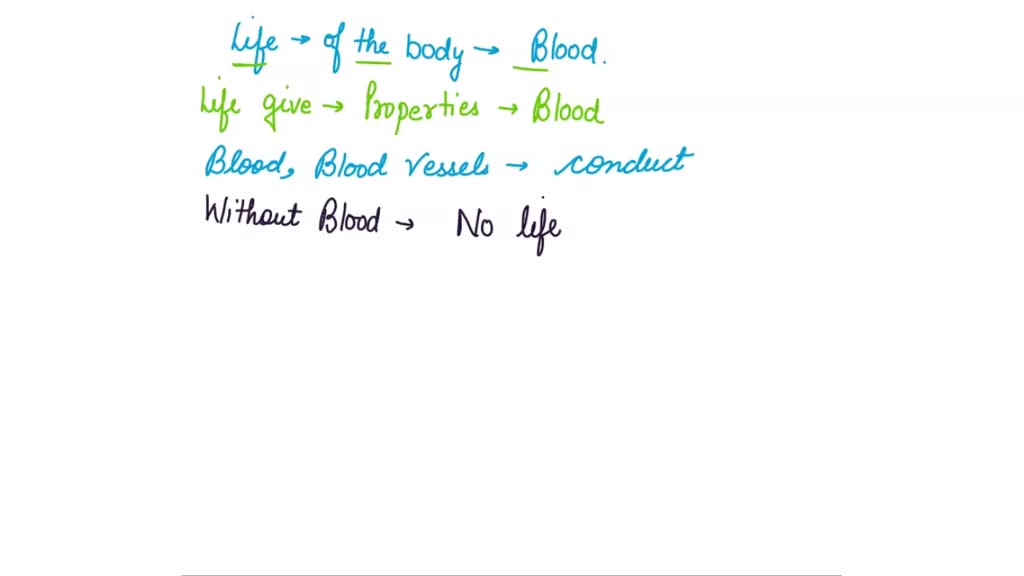 Life → of the body → Blood.
Life give → Properties → Blood
Blood, Blood vessels → conduct
Without Blood → No life